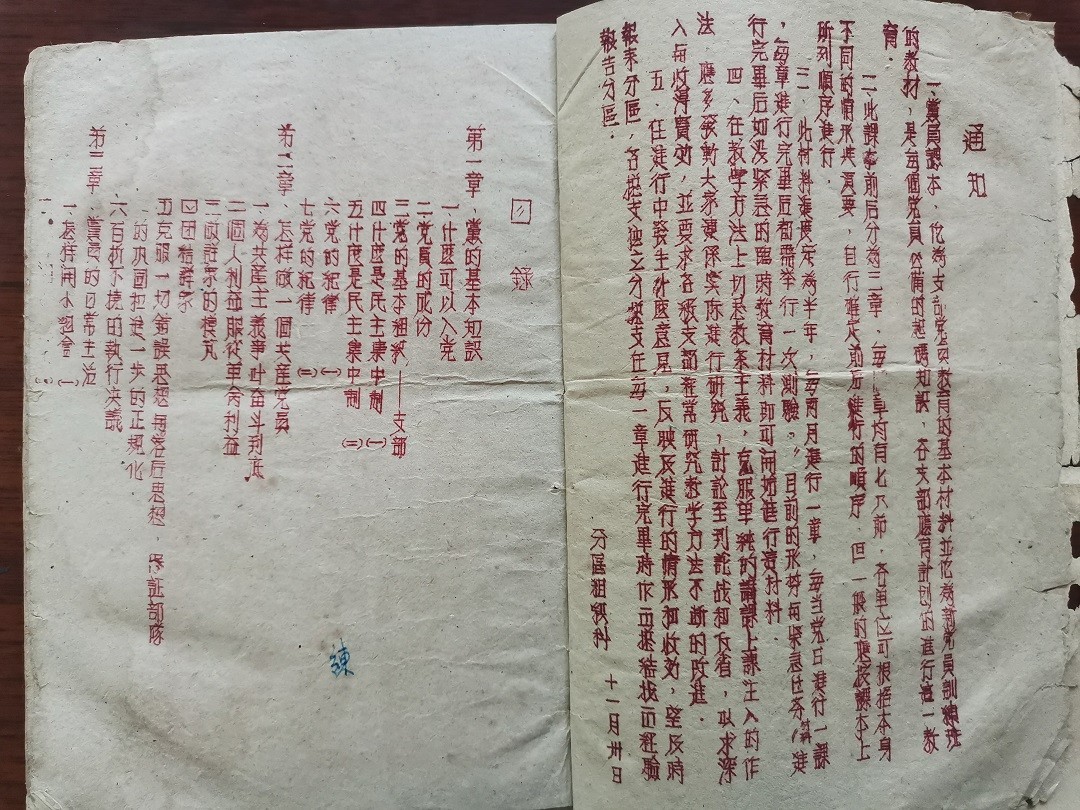 通知
一、黨員課本，佗為支部党員教育的基本材料並佗為新党員訓練班
的教材，是每個党員必備的起碼知識，各支部應有計划的進行這一教
育．
二、此課本前后分為三章，每一章均有七八節，各單位可根据本身
不同的情形與須要，自行確定前后進行的順序，但一般的應按課本上
所列順序進行．
三、此材料進度定為半年，每兩月進行一章，每当党日進行一課
，每章進行完畢后都需举行一次測驗。目前的形势與緊急任务
行完畢后如没緊急的臨時教育材料即可開始進行該材料．
四、在教学方法上切忌教条主義，克服单純的講課上課注入的作
法，應多發動大家連係实际進行研究，討論至到論战和反省，以求深
入与收得實効，並要求各級支部經常研究教学方法不断的改進．
五、在進行中發生什麼意見，反映及進行的情形和收効，望及時
報来分區，各級支在每一章進行完畢時作出総結找出經驗
報告分區．
分區組織科
十一月卅日
目録
第一章、黨的基本知識
一、什麼可以入党
二党員的成份
三党的基本組織——支部
四什麼是民主集中制（一）
五什麼是民主集中制（二）
六党的紀律（一）
七党的紀律（二）
第二章、怎样做一個共産党員
一、為共産主義事叶奋斗到底
二個人利益服從革命利益
三做群眾的模范
四团結群眾
五克服一切錯誤思想與落后思想，保証部隊
的巩固和進一步的正規化
六百折不撓的執行决議
第三章、黨員的日常生活
一、怎样開小組會（一）
二、（二）
練